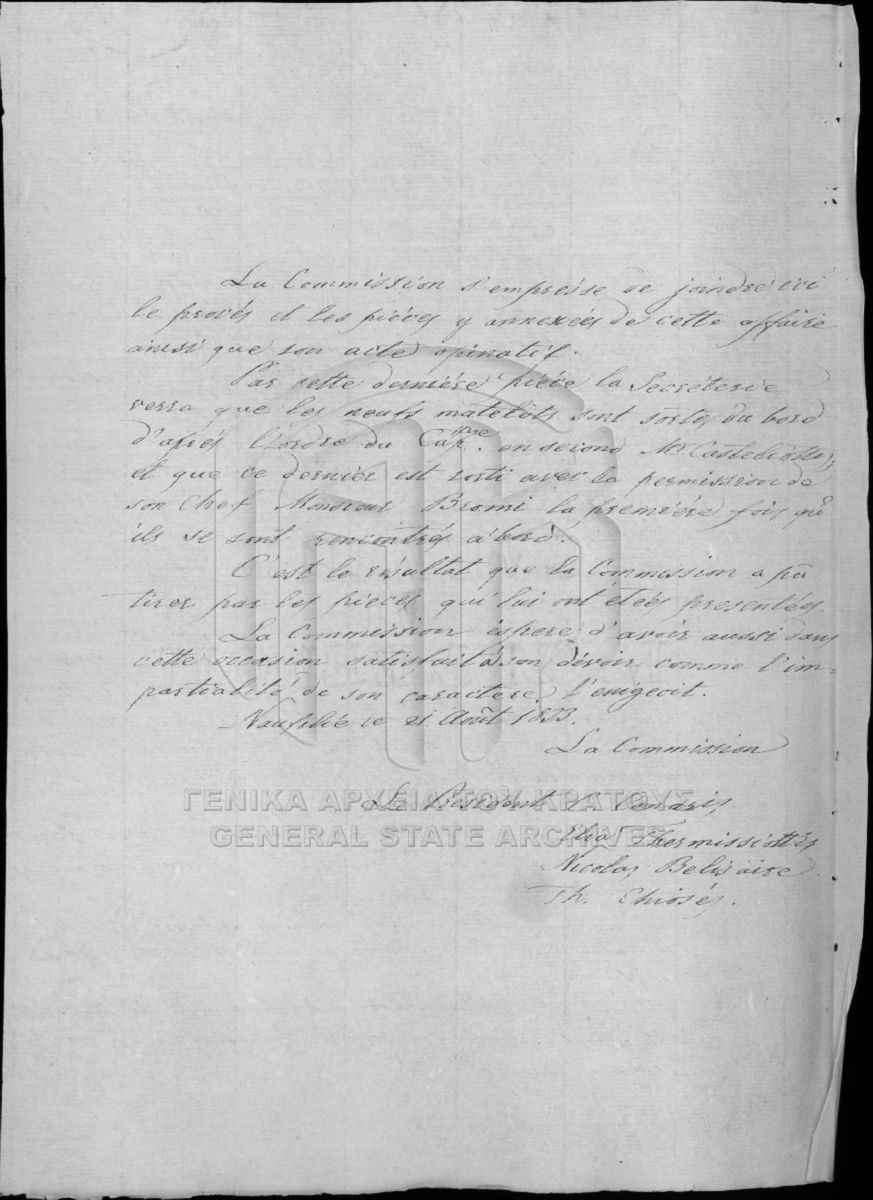 La Commission s'empresse de joindre ici
le procés et les piéces y annexées de cette affaire
ainsi que son acte opinatif.
Par cette derniére piéce la Secréterie
verra que les neufs matelôts sont sortes du bord
d'aprés l'ordre du Cap.ne en second Mr
et que ce dernier est sorti avec la permission de
son Chef Monsieur Bromi la premiére fois qu'
ils se sont rencontrés à bord.
C'est le résultat que la Commission a pû
tirer par les pieces qui lui ont étées presentées.
La Commission éspere d'avoir aussi dans
cette occasion satisfait à son dévoir comme l'im=
partialité de son caractere l'enigeoit.
Nauplie le 21 Août 1833.
La Commission
Le President C. Canaris,
Elia Thermissiottis
Nicolas Belisaire
Th. Ehiosés.
ΓΕΝΙΚΑ ΑΡΧΕΙΑ ΤΟΥ ΚΡΑΤΟΥΣ
GENERAL STATE ARCHIVES